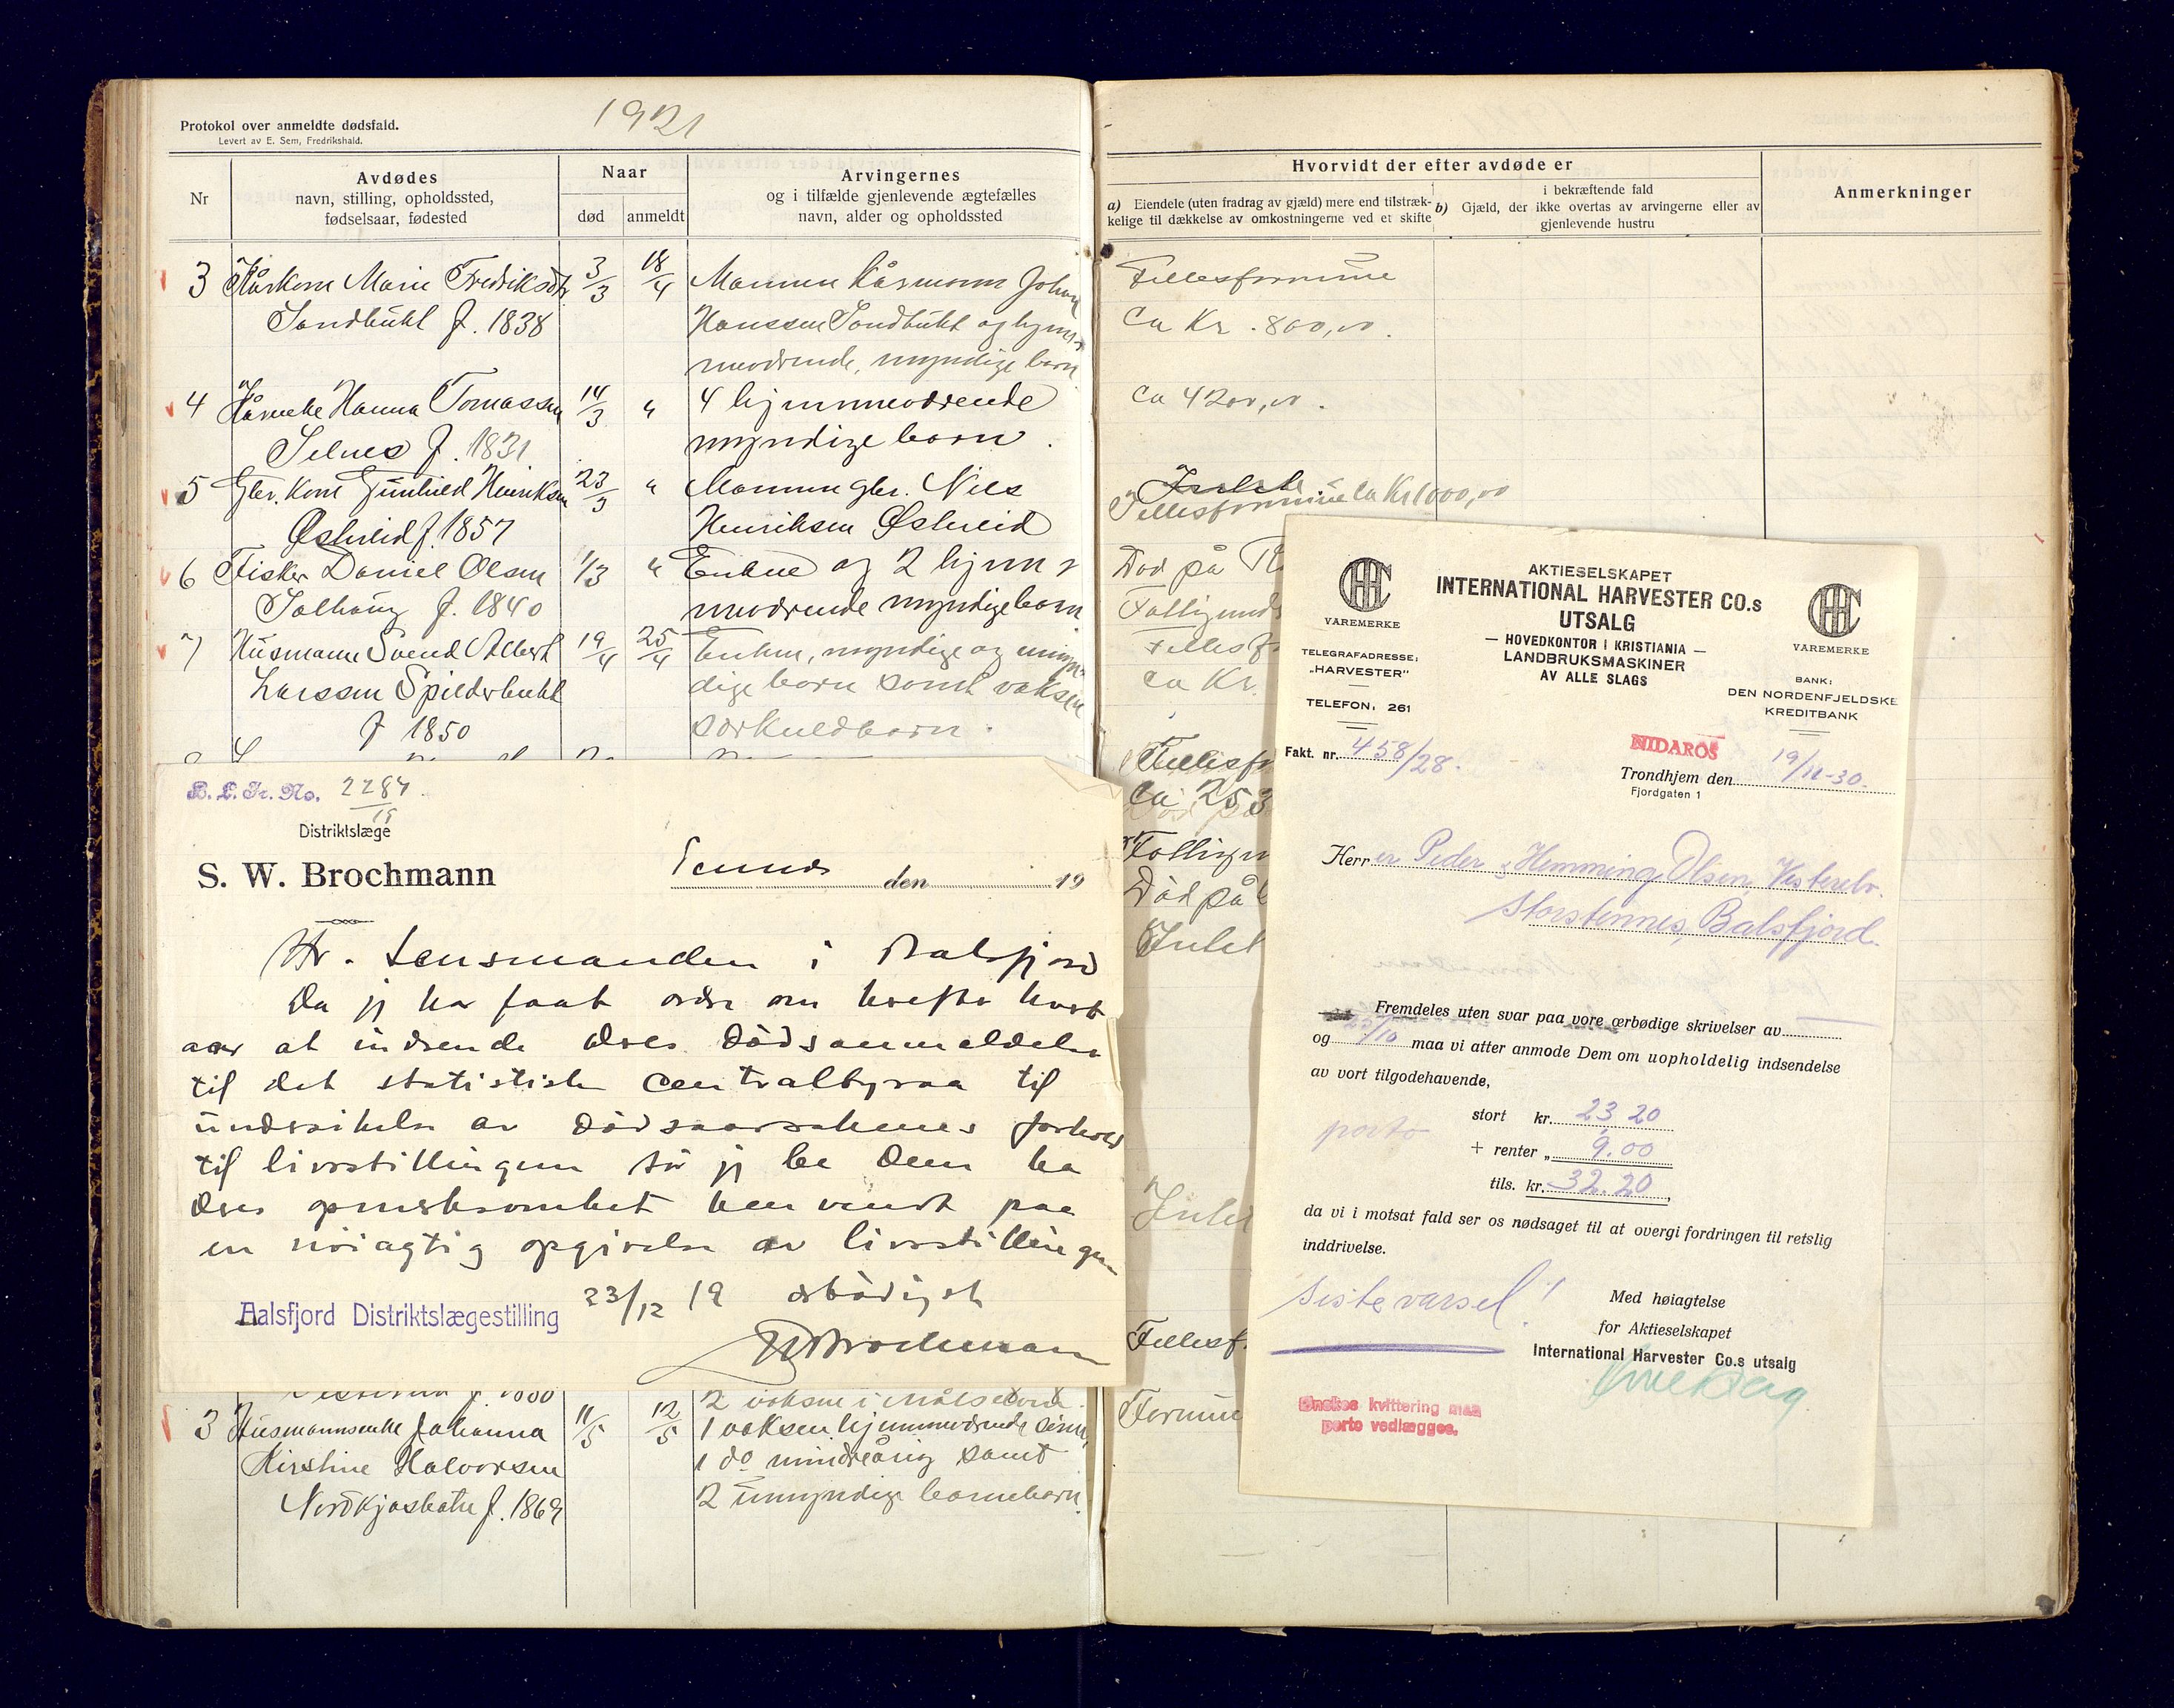 1921
Protokol over anmeldte dødsfald.
Levert av E. Sem, Fredrikshald.
Nr
Avdødes
navn, stilling, opholdssted,
fødselsaar, fødested
Naar
død
anmeldt
Arvingernes
og i tilfælde gjenlevende ægtefælles
navn, alder og opholdssted
3 Kårkone Marie Fredriksdtr 3/3 18/4 Mannen kårmann Johan
Sandbukt f. 1838 Hanssen Sandbukt og hjem-
meværende, myndige børn
4 Kårenke Hanna Tomassen 14/3 " 4 hjemmeværende
Selnes f. 1831 myndige børn.
5 Gbr. kone Gunhild Henriksen 23/3 " Mannen gbr. Nils
Østreid f. 1857 Henriksen Østreid
6 Fisker Daniel Olsen 1/3 " Enken og 2 hjem-
Solhaug f. 1840 meværende myndige børn
7 Husmann Svend Albert 19/4 25/4 Enken, myndige og umyn-
Larssen Spilderbukt dige børn samt voksen
f 1850 særkuldbørn.
B. L. Jr. No. 2284/19
Distriktslæge
S. W. Brochmann
den 19
Hr. Lensmanden i Balsfjord
Da jeg har faat ordre om herefter hvert
aar at indsende Deres dødsanmeldelser
til det statistiske centralbyraa til
undersøkelse av dødsaarsakenes forhold
til livsstillingen tør jeg be Dem ha
Deres opmerksomhet henvendt paa
en nøiagtig opgivelse av livsstillingen
Aalsfjord Distriktslægestilling 23/12 19 ærbødigst
SWBrochmann
f. 1880 2 voksne i Målselven.
3 Husmannsenke Johanna 11/5 12/5 1 voksen hjemmeværende sønn,
Kirstine Halvorsen 1 do mindreårig samt
Nordkjosbotn f. 1869 2 umyndige barnebarn.
Hvorvidt der efter avdøde er
a) Eiendele (uten fradrag av gjæld) mere end tilstræk-
kelige til dækkelse av omkostningerne ved et skifte
i bekræftende fald
b) Gjæld, der ikke overtas av arvingerne eller av
gjenlevende hustru
Anmerkninger
Fellesformue
ca Kr. 800,00.
ca 4200,00.
Intet
Fellesformue ca Kr 1000,00
Død på
Fattigunds
Fellesf
ca Kr.
Fellesf
ca 253
Fattigun
Død på
Intet
Intet
Fellesf
Formue
AKTIESELSKAPET
INTERNATIONAL HARVESTER CO.s
UTSALG
— HOVEDKONTOR I KRISTIANIA —
LANDBRUKSMASKINER
AV ALLE SLAGS
IHC
VAREMERKE
TELEGRAFADRESSE:
„HARVESTER"
TELEFON: 261
IHC
VAREMERKE
BANK:
DEN NORDENFJELDSKE
KREDITBANK
Fakt. nr. 458/28.
NIDAROS
Trondhjem den 19/11-30.
Fjordgaten 1
Herrer Peder & Hemming Olsen, Vesterelv.
Storstennes, Balsfjord.
Fremdeles uten svar paa vore ærbødige skrivelser av
og 25/10 maa vi atter anmode Dem om uopholdelig indsendelse
av vort tilgodehavende,
stort kr. 23,20
porto
+ renter „ 9.00
tils. kr. 32.20,
da vi i motsat fald ser os nødsaget til at overgi fordringen til retslig
inddrivelse.
siste varsel!
Med høiagtelse
for Aktieselskapet
International Harvester Co.s utsalg
Ønskes kvittering maa
porto vedlægges.